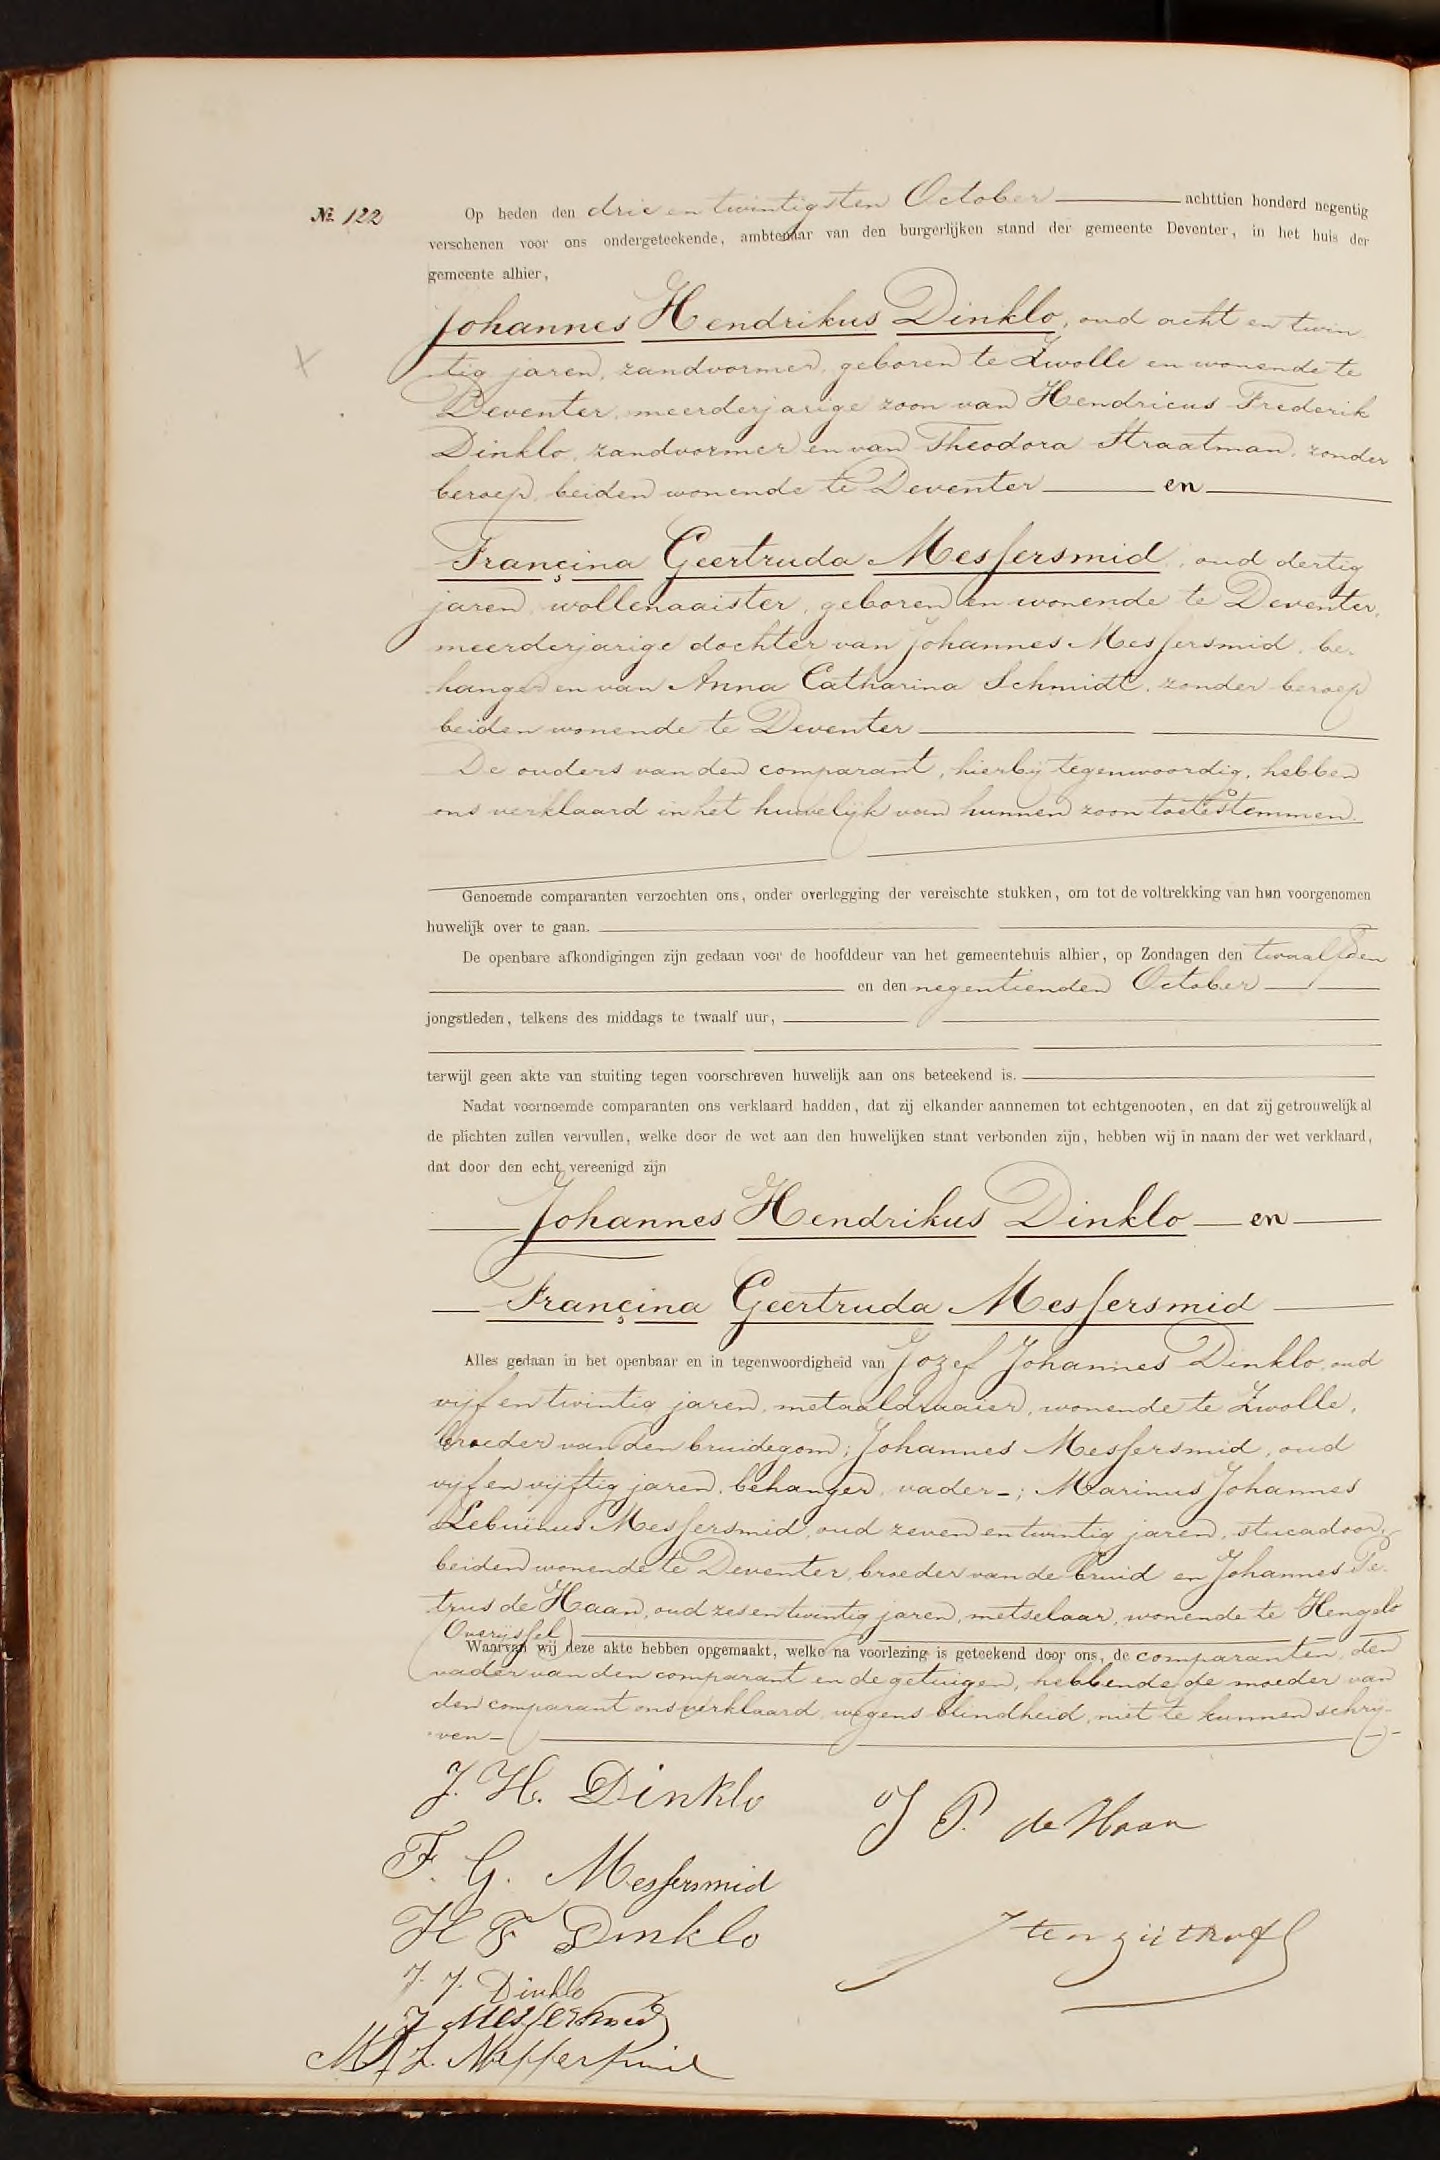 № 122
Op heden den drie en twintigsten October achttien honderd negentig
verschenen voor ons ondergeteekende, ambtenaar van den burgerlijken stand der gemeente Deventer, in het huis der
gemeente alhier,
Johannes Hendrikus Dinklo, oud acht en twin
tig jaren, zandvormer, geboren te Zwolle en wonende te
Deventer, meerderjarige zoon van Hendricus Frederik
Dinklo, zandvormer en van Theodora Straatman, zonder
beroep, beiden wonende te Deventer en
Françina Geertruda Messersmid, oud dertig
jaren, wollenaaister, geboren en wonende te Deventer,
meerderjarige dochter van Johannes Messersmid, be-
hanger en van Anna Catharina Schmidt, zonder beroep
beiden wonende te Deventer
De ouders van den comparant, hierbij tegenwoordig, hebben
ons verklaard in het huwelijk van hunnen zoon toetestemmen.
Genoemde comparanten verzochten ons, onder overlegging der vereischte stukken, om tot de voltrekking van hun voorgenomen
huwelijk over te gaan.
De openbare afkondigingen zijn gedaan voor de hoofddeur van het gemeentehuis alhier, op Zondagen den twaalfden
en den negentienden October
jongstleden, telkens des middags te twaalf uur,
terwijl geen akte van stuiting tegen voorschreven huwelijk aan ons beteekend is.
Nadat voornoemde comparanten ons verklaard hadden, dat zij elkander aannemen tot echtgenooten, en dat zij getrouwelijk al
de plichten zullen vervullen, welke door de wet aan den huwelijken staat verbonden zijn, hebben wij in naam der wet verklaard,
dat door den echt vereenigd zijn
Johannes Hendrikus Dinklo en
Françina Geertruda Messersmid
Alles gedaan in het openbaar en in tegenwoordigheid van Jozef Johannes Dinklo, oud
vijf en twintig jaren, metaaldraaier, wonende te Zwolle,
broeder van den bruidegom; Johannes Messersmid, oud
vijf en vijftig jaren, behanger, vader-; Marinus Johannes
Lebuïnus Messersmid, oud zeven en twintig jaren, stucadoor,
beiden wonende te Deventer, broeder van de bruid en Johannes Pe-
trus de Haan, oud zes en twintig jaren, metselaar, wonende te Hengelo
(Overijssel)
Waarvan wij deze akte hebben opgemaakt, welke na voorlezing is geteekend door ons, de comparanten, den
vader van den comparant en de getuigen, hebbende de moeder van
den comparant ons verklaard, wegens blindheid, niet te kunnen schrij-
ven-
J. H. Dinklo
J P. de Haan
F. G. Messersmid
H F Dinklo
J. J. Dinklo
J Messersmid
M J L. Messersmid